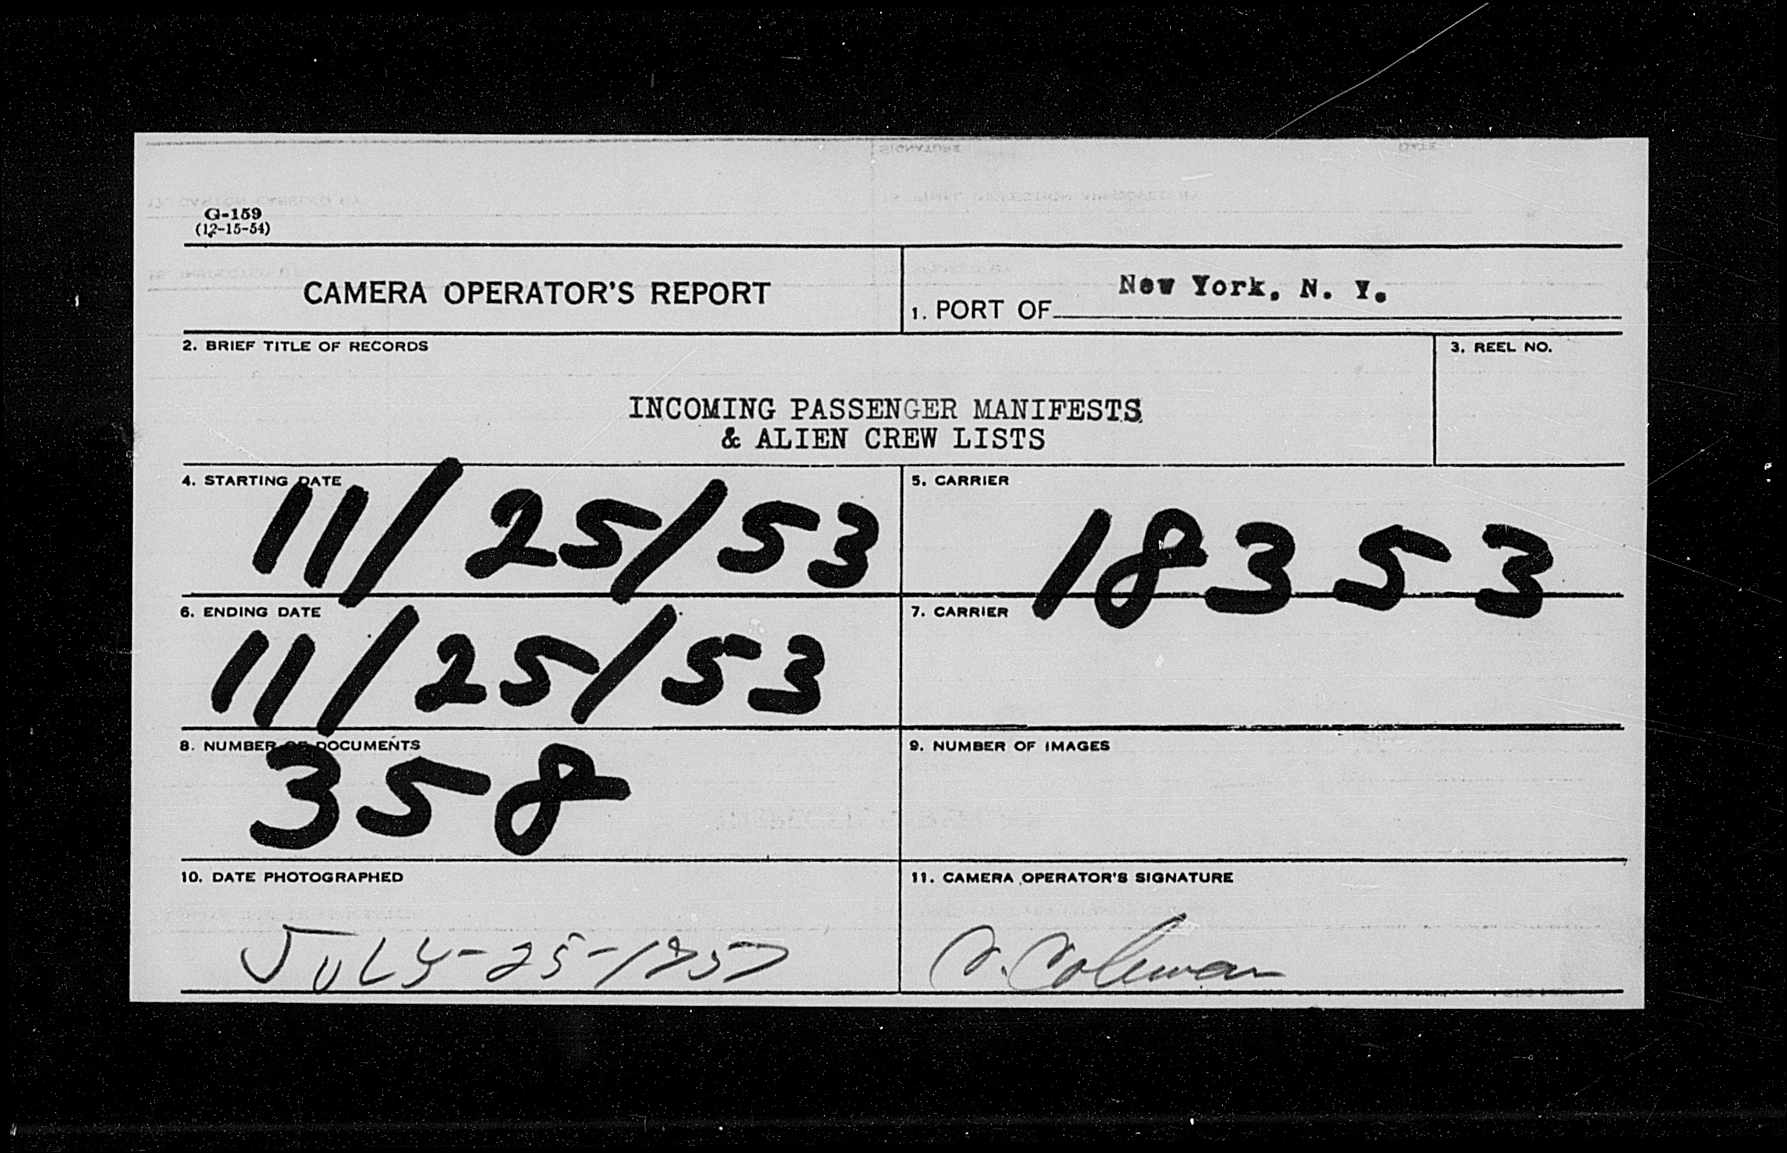 G-159
(12-15-54)
CAMERA OPERATOR'S REPORT
1. PORT OF New York, N. Y.
2. BRIEF TITLE OF RECORDS
3. REEL NO.
INCOMING PASSENGER MANIFESTS
& ALIEN CREW LISTS
4. STARTING DATE
11/25/53
5. CARRIER
18353
6. ENDING DATE
11/25/53
7. CARRIER
8. NUMBER OF DOCUMENTS
358
9. NUMBER OF IMAGES
10. DATE PHOTOGRAPHED
JULY-25-1957
11. CAMERA OPERATOR'S SIGNATURE
Coleman